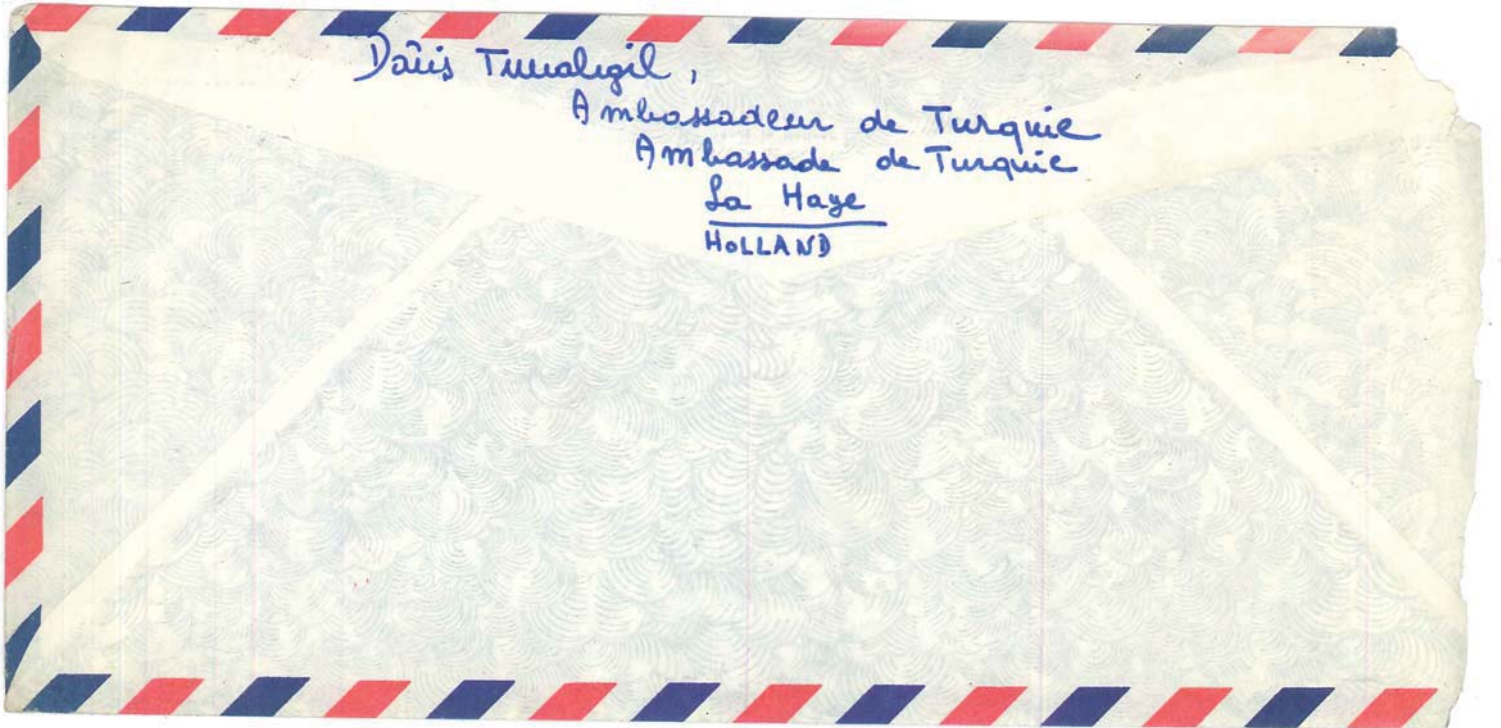 Dâiş Tunalıgil,
Ambassadeur de Turquie
Ambassade de Turquie
La Haye
HOLLAND